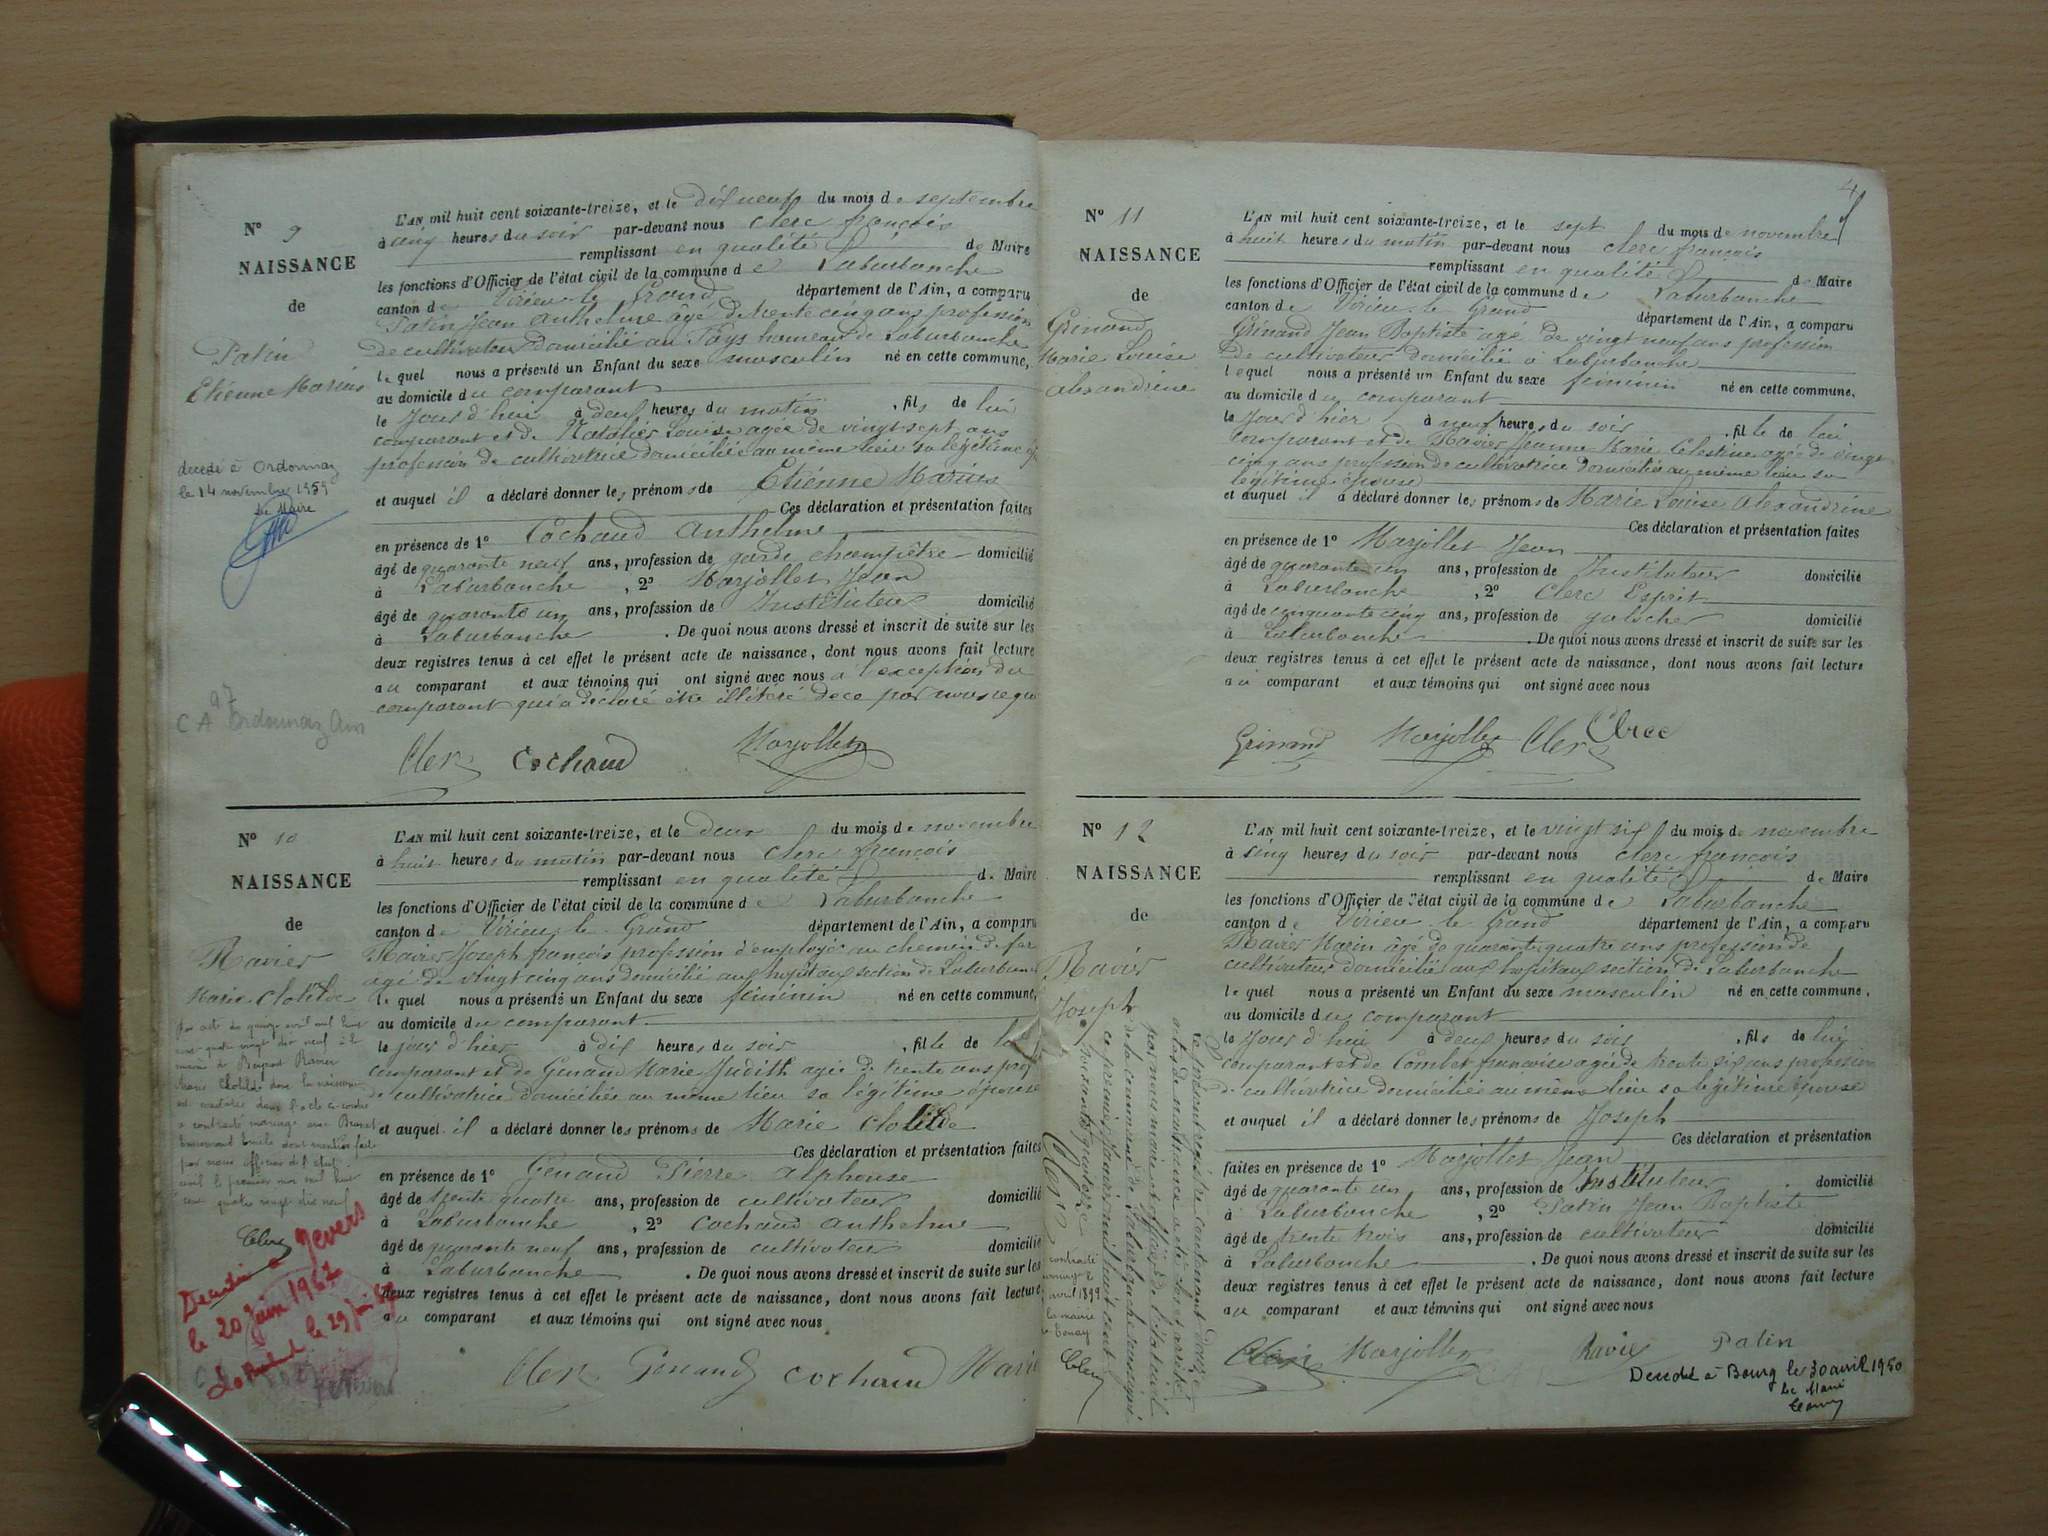 N° 9
NAISSANCE
de
Patin
Etienne Marius
décédé à Ordonnaz
le 14 novembre 1959
Le Maire
CA Ordonnaz Ain
L'AN mil huit cent soixante-treize, et le dix neuf du mois de septembre
à cinq heures du soir par-devant nous Clerc françois
remplissant en qualité de Maire
les fonctions d'Officier de l'état civil de la commune de Laburbanche
canton de Virieu le Grand département de l'Ain, a comparu
Patin Jean Anthelme agé de trente cinq ans profession
de cultivateur domicilié au Pays hameau de Laburbanche
lequel nous a présenté un Enfant du sexe masculin né en cette commune,
au domicile du comparant
le jour d'hui à deux heures du matin, fils de lui
comparant et de Louise agée de vingt sept ans
profession de cultivatrice domiciliée au même lieu sa légitime
et auquel il a déclaré donner les prénoms de Etiénne Marius
Ces déclaration et présentation faites
en présence de 1° Cochaud Anthelme
âgé de quarante neuf ans, profession de garde champêtre domicilié
à Laburbanche, 2° Marjollet Jean
âgé de quarante un ans, profession de Instituteur domicilié
à Laburbanche. De quoi nous avons dressé et inscrit de suite sur les
deux registres tenus à cet effet le présent acte de naissance, dont nous avons fait lecture
au comparant et aux témoins qui ont signé avec nous à l'exception du
comparant qui a déclaré être illétéré de ce par nous requis
Clerc Cochaud Marjollet
N° 10
NAISSANCE
de
Ravier
Marie Clotilde
par acte du quinze avril mil huit
cent quatre vingt dix neuf à la
mairie de Ravier
Marie Clotilde dont la naissance
est constatée dans l'acte ci-contre
a contracté mariage avec Brunet
dont mention faite
par nous officier de l'état
civil le premier mai mil huit
cent quatre vingt dix neuf
Clerc
Décédée à Nevers
le 20 juin 1962
L'AN mil huit cent soixante-treize, et le deux du mois de novembre
à huit heures du matin par-devant nous Clerc françois
remplissant en qualité de Maire
les fonctions d'Officier de l'état civil de la commune de Laburbanche
canton de Virieu le Grand département de l'Ain, a comparu
Ravier Joseph françois profession d'employé au chemin de fer
agé de vingt cinq ans domicilié aux hopitaux section de Laburbanche
lequel nous a présenté un Enfant du sexe féminin né en cette commune,
au domicile du comparant
le jour d'hier à dix heures du soir, fille de lui
comparant et de Genaud Marie Judith agée de trente ans
de cultivatrice domiciliée au même lieu sa légitime épouse
et auquel il a déclaré donner les prénoms de Marie Clotilde
Ces déclaration et présentation faites
en présence de 1° Genaud Pierre Alphonse
âgé de trente quatre ans, profession de cultivateur domicilié
à Laburbanche, 2° Cochaud Anthelme
âgé de quarante neuf ans, profession de cultivateur domicilié
à Laburbanche. De quoi nous avons dressé et inscrit de suite sur les
deux registres tenus à cet effet le présent acte de naissance, dont nous avons fait lecture
au comparant et aux témoins qui ont signé avec nous
Clerc Genaud Cochaud
4
N° 11
NAISSANCE
de
Grinand
Marie Louise
Alexandrine
L'AN mil huit cent soixante-treize, et le sept du mois de novembre
à huit heures du matin par-devant nous Clerc françois
remplissant en qualité de Maire
les fonctions d'Officier de l'état civil de la commune de Laburbanche
canton de Virieu le Grand département de l'Ain, a comparu
Grinand Jean Baptiste agé de vingt neuf ans profession
de cultivateur domicilié à Laburbanche
lequel nous a présenté un Enfant du sexe féminin né en cette commune,
au domicile du comparant
le jour d'hier à neuf heures du soir, fille de lui
comparant et de Ravier Jeanne Marie Célestine agée de vingt
cinq ans profession de cultivatrice domiciliée au même lieu sa
légitime épouse
et auquel il a déclaré donner les prénoms de Marie Louise Alexandrine
Ces déclaration et présentation faites
en présence de 1° Marjollet Jean
âgé de quarante un ans, profession de Instituteur domicilié
à Laburbanche, 2° Clerc Esprit
âgé de cinquante cinq ans, profession de domicilié
à Laburbanche. De quoi nous avons dressé et inscrit de suite sur les
deux registres tenus à cet effet le présent acte de naissance, dont nous avons fait lecture
au comparant et aux témoins qui ont signé avec nous
Grinand Marjollet Clerc Clerc
N° 12
NAISSANCE
de
Ravier
Joseph
Le présent registre contenant douze
actes de naissance a été clos et arrêté
par nous maire et officier de l'état civil
de la commune de Laburbanche soussigné
ce premier Janvier mil huit cent
soixante quatorze
Clerc
contracté
mariage
avril 1899
la mairie
de Tenay
Clerc
L'AN mil huit cent soixante-treize, et le vingt six du mois de novembre
à cinq heures du soir par-devant nous Clerc françois
remplissant en qualité de Maire
les fonctions d'Officier de l'état civil de la commune de Laburbanche
canton de Virieu le Grand département de l'Ain, a comparu
Ravier Marin agé de quarante quatre ans profession de
cultivateur domicilié aux hopitaux section de Laburbanche
lequel nous a présenté un Enfant du sexe masculin né en cette commune,
au domicile du comparant
le jour d'hui à deux heures du soir, fils de lui
comparant et de Combet françoise agée de trente six ans profession
de cultivatrice domiciliée au même lieu sa légitime épouse
et auquel il a déclaré donner les prénoms de Joseph
Ces déclaration et présentation
faites en présence de 1° Marjollet Jean
âgé de quarante un ans, profession de Instituteur domicilié
à Laburbanche, 2° Patin Jean Baptiste
âgé de trente trois ans, profession de cultivateur domicilié
à Laburbanche. De quoi nous avons dressé et inscrit de suite sur les
deux registres tenus à cet effet le présent acte de naissance, dont nous avons fait lecture
au comparant et aux témoins qui ont signé avec nous
Clerc Marjollet Ravier Patin
Décédé à Bourg le 30 avril 1950
Le Maire